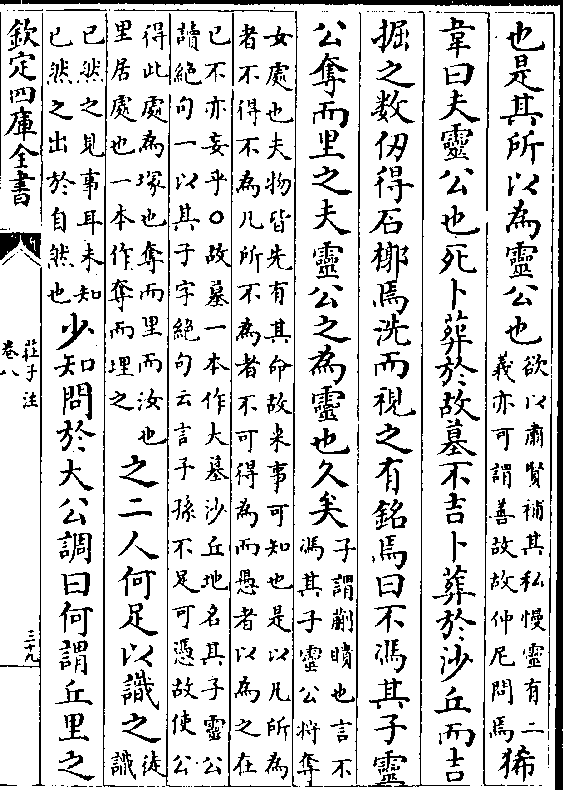 也是其所以為靈公也欲以肅賢補其私慢靈有二
義亦可謂善故故仲尼問焉狶
韋曰夫靈公也死卜葬於故墓不吉卜葬於沙丘而吉
掘之數仞得石槨焉洗而視之有銘焉曰不馮其子靈
公奪而里之夫靈公之為靈也久矣子謂蒯聵也言不
馮其子靈公將奪
女處也夫物皆先有其命故来事可知也是以凡所為
者不得不為凡所不為者不可得為而愚者以為之在
已不亦妄乎○故墓一本作大墓沙丘地名其子靈公
讀絶句一以其子字絶句云言子孫不足可憑故使公
得此處為塚也奪而里而汝也
里居處也一本作奪而埋之之二人何足以識之徒
識
已然之見事耳未知
已然之出於自然也少知問於大公調曰何謂丘里之
欽定四庫全書
莊子注
卷八
三十九